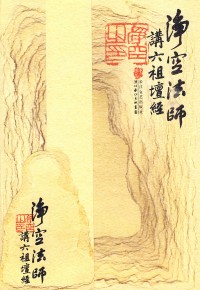 淨空法師
講六祖壇經
淨空法師
講六祖壇經